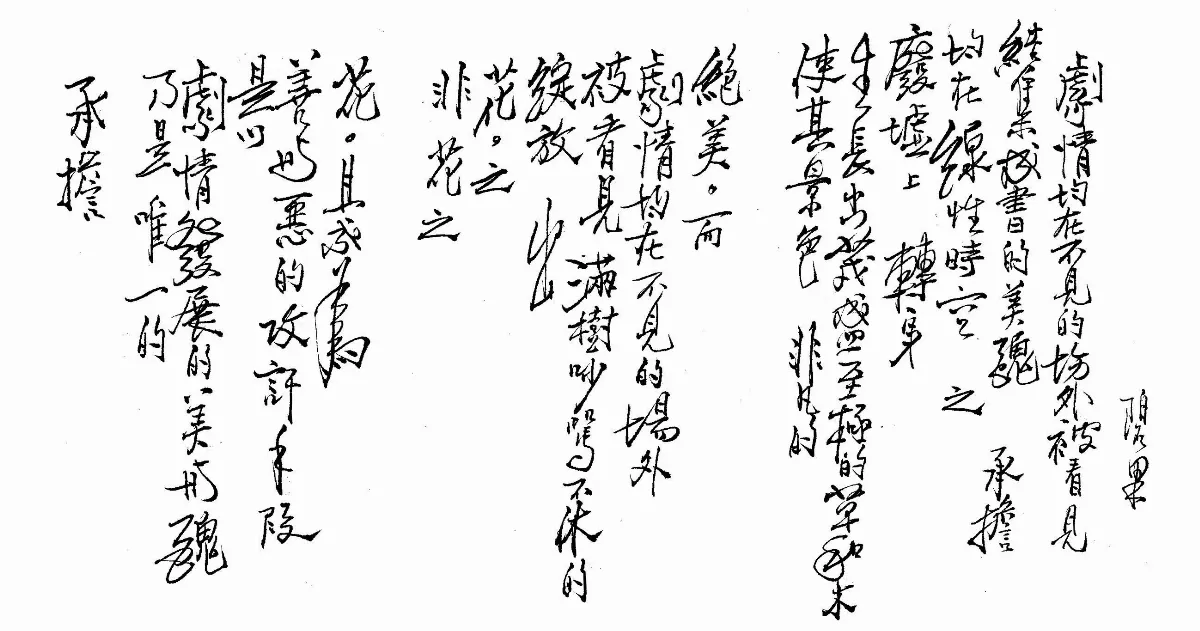 劇情均在不見的場外被看見
結集成書的美醜
均在線性時空之
承擔
廢墟上 轉身
生長出茂盛至極的草和木
使其景色 非凡的
絕美。而
劇情均在不見的場外
被看見 滿樹吵鬧不休的
綻放出
花。之
非花之
花。且成為
善與惡的攻訐手段
是以
劇情發展的美與醜
乃是唯一的
承擔